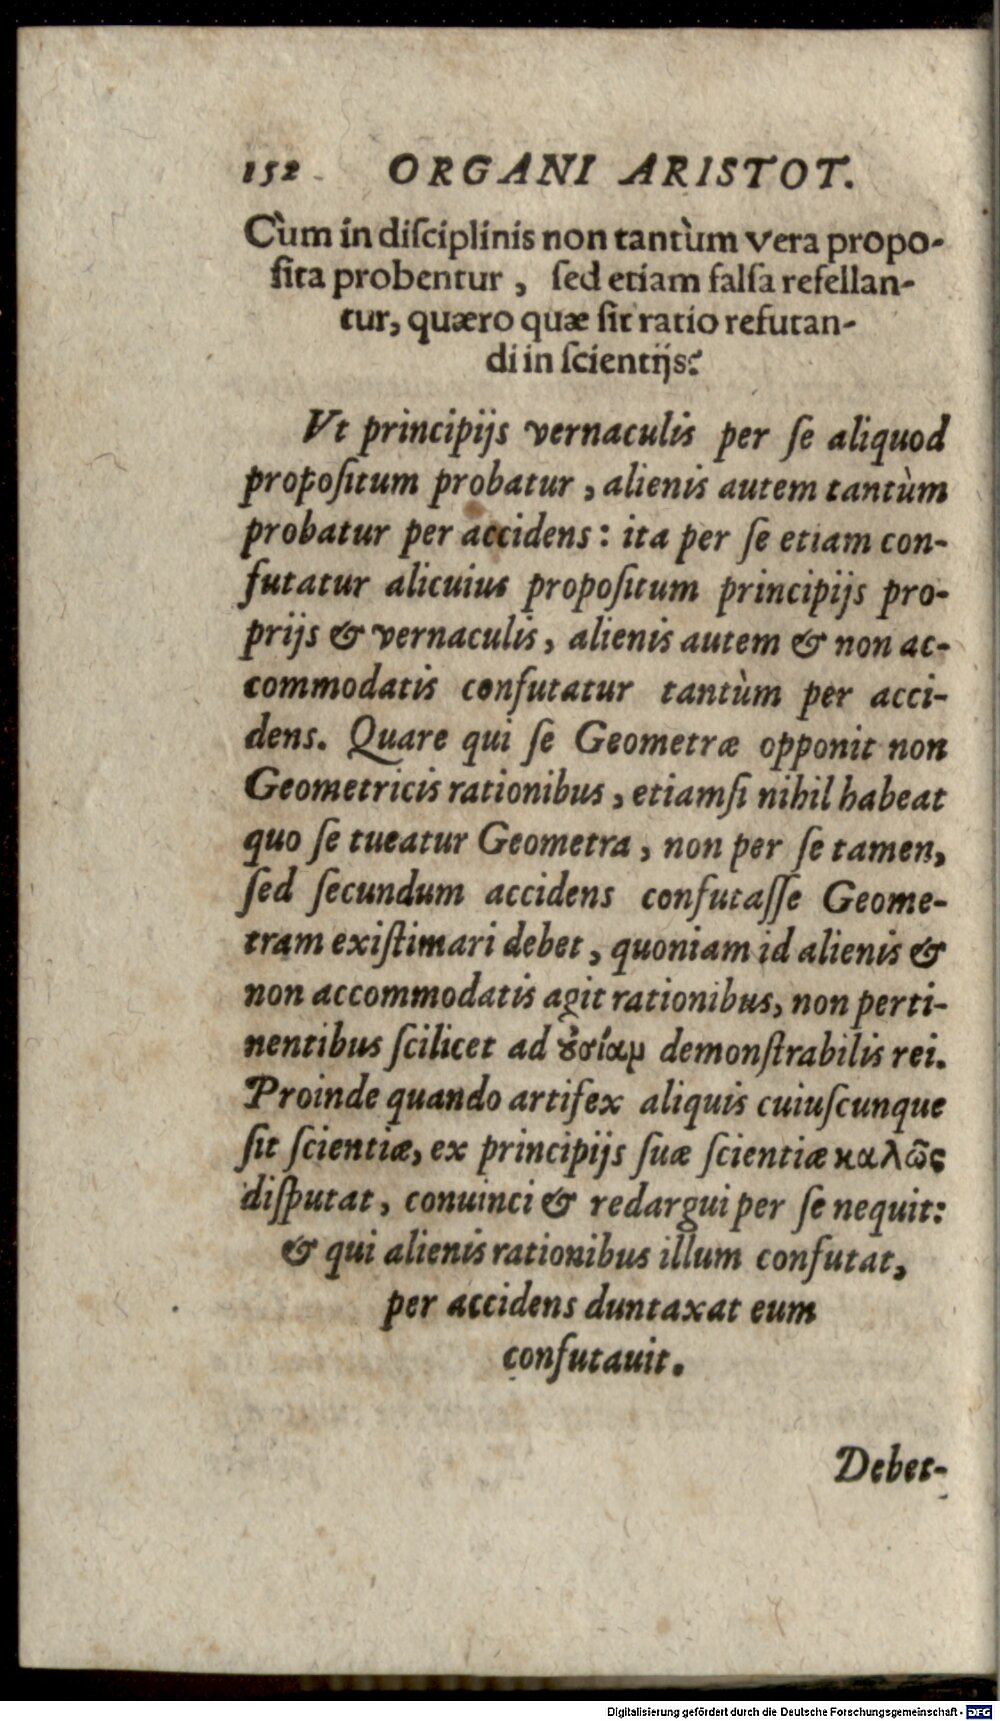 152 ORGANI ARISTOT.
Cùm in diſciplinis non tantùm vera propo-
ſita probentur, ſed etiam falſa refellan-
tur, quæro quæ ſit ratio refutan-
di in ſcientijs?
Vt principijs vernaculis per ſe aliquod
propoſitum probatur, alienis autem tantùm
probatur per accidens: ita per ſe etiam con-
futatur alicuius propoſitum principijs pro-
prijs & vernaculis, alienis autem & non ac-
commodatis confutatur tantùm per acci-
dens. Quare qui ſe Geometræ opponit non
Geometricis rationibus, etiamſi nihil habeat
quo ſe tueatur Geometra, non per ſe tamen,
ſed ſecundum accidens confutaſſe Geome-
tram exiſtimari debet, quoniam id alienis &
non accommodatis agit rationibus, non perti-
nentibus ſcilicet ad ȣ̓σίαμ demonſtrabilis rei.
Proinde quando artifex aliquis cuiuſcunque
ſit ſcientiæ, ex principijs ſuæ ſcientiæ καλῶς
diſputat, conuinci & redargui per ſe nequit:
& qui alienis rationibus illum confutat,
per accidens duntaxat eum
confutauit.
Debet-
Digitalisierung gefördert durch die Deutsche Forschungsgemeinschaft - DFG